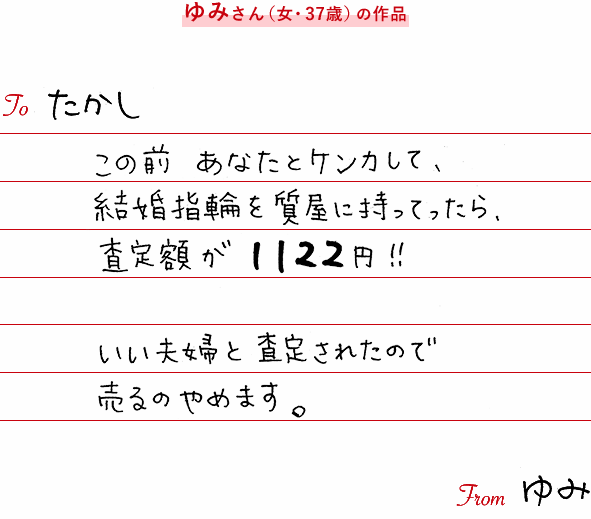 ゆみさん（女・37歳）の作品
To たかし
この前 あなたとケンカして、
結婚指輪を質屋に持ってったら、
査定額が 1122円!!
いい夫婦と査定されたので
売るのやめます。
From ゆみ